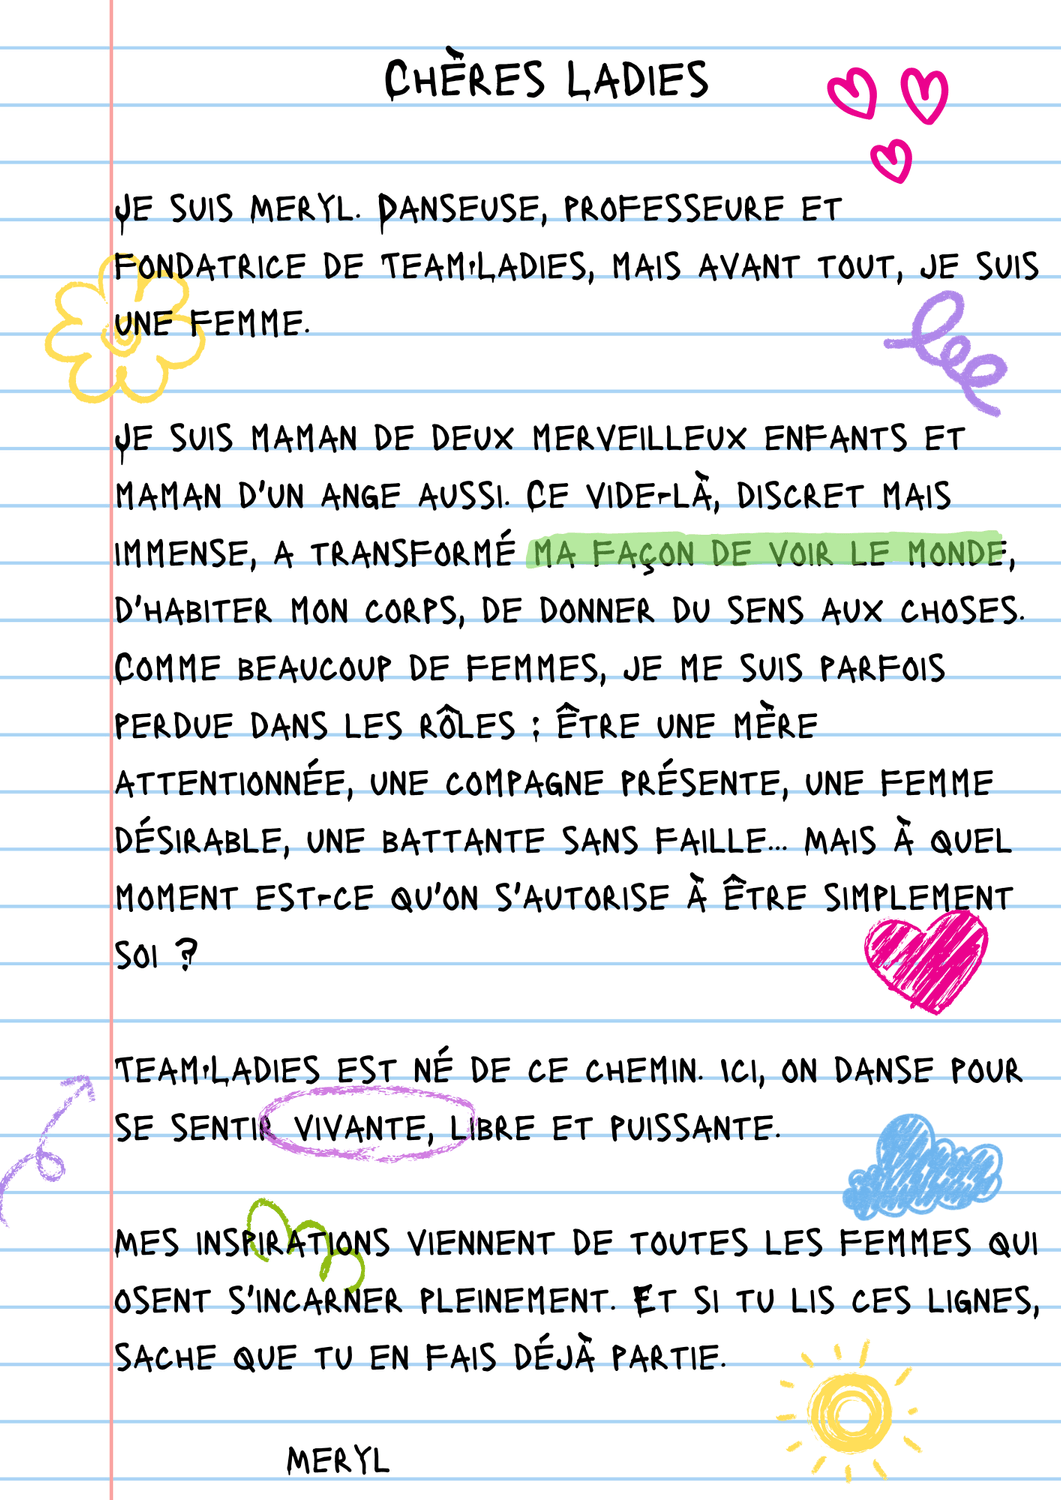 CHÈRES LADIES
JE SUIS MERYL. DANSEUSE, PROFESSEURE ET
FONDATRICE DE TEAM·LADIES, MAIS AVANT TOUT, JE SUIS
UNE FEMME.
JE SUIS MAMAN DE DEUX MERVEILLEUX ENFANTS ET
MAMAN D'UN ANGE AUSSI. CE VIDE-LÀ, DISCRET MAIS
IMMENSE, A TRANSFORMÉ MA FAÇON DE VOIR LE MONDE,
D'HABITER MON CORPS, DE DONNER DU SENS AUX CHOSES.
COMME BEAUCOUP DE FEMMES, JE ME SUIS PARFOIS
PERDUE DANS LES RÔLES : ÊTRE UNE MÈRE
ATTENTIONNÉE, UNE COMPAGNE PRÉSENTE, UNE FEMME
DÉSIRABLE, UNE BATTANTE SANS FAILLE... MAIS À QUEL
MOMENT EST-CE QU'ON S'AUTORISE À ÊTRE SIMPLEMENT
SOI ?
TEAM·LADIES EST NÉ DE CE CHEMIN. ICI, ON DANSE POUR
SE SENTIR VIVANTE, LIBRE ET PUISSANTE.
MES INSPIRATIONS VIENNENT DE TOUTES LES FEMMES QUI
OSENT S'INCARNER PLEINEMENT. ET SI TU LIS CES LIGNES,
SACHE QUE TU EN FAIS DÉJÀ PARTIE.
MERYL